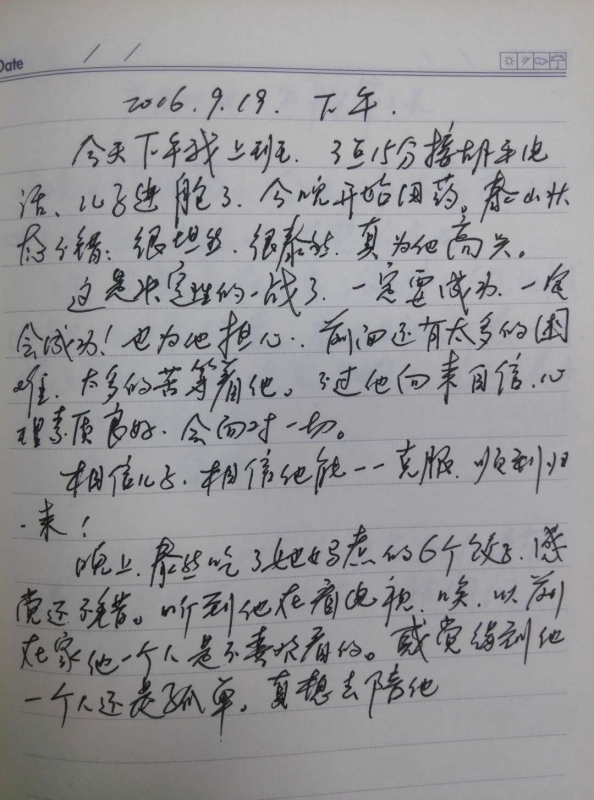 Date / /
2006.9.19. 下午.
今天下午我上班, 3点15分接胡平电
话、儿子进舱了, 今晚开始用药。泰山状
态不错: 很坦然, 很泰然, 真为他高兴。
这是决定性的一战了, 一定要成功, 一定
会成功! 也为他担心.. 前面还有太多的困
难, 太多的苦等着他。不过他向来自信, 心
理素质良好, 会面对一切。
相信儿子, 相信他能一一克服, 顺利归
来!
晚上, 泰然吃了她妈煮的6个饺子, 感
觉还不错。听到他在看电视, 唉, 以前
在家他一个人是不喜欢看的。感觉得到他
一个人还是孤单, 真想去陪他